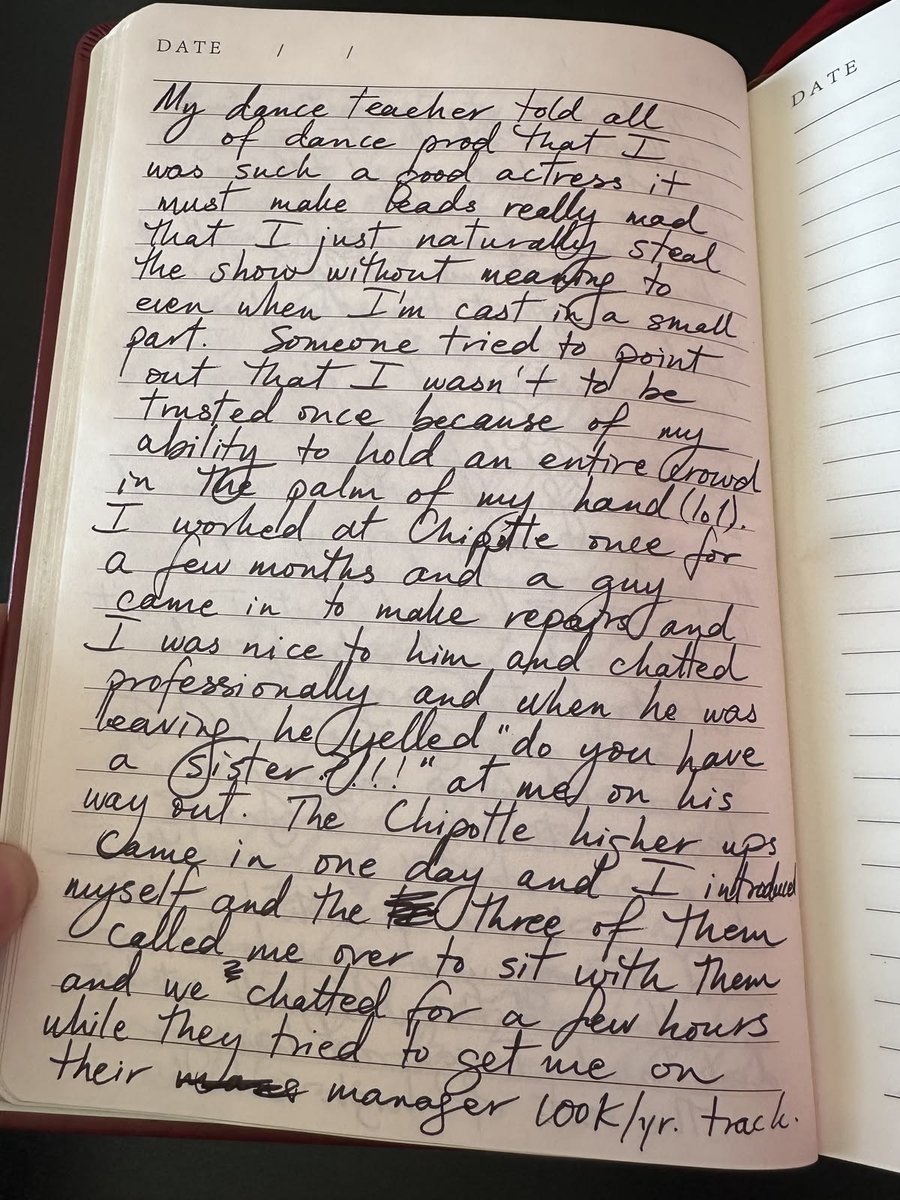 DATE / /
My dance teacher told all
of dance prod that I
was such a good actress it
must make leads really mad
that I just naturally steal
the show without meaning to
even when I'm cast in a small
part. Someone tried to point
out that I wasn't to be
trusted once because of my
ability to hold an entire crowd
in the palm of my hand (lol).
I worked at Chipotle once for
a few months and a guy
came in to make repairs and
I was nice to him and chatted
professionally and when he was
leaving he yelled "do you have
a sister?!!!" at me on his
way out. The Chipotle higher ups
came in one day and I introduced
myself and the three of them
called me over to sit with them
and we chatted for a few hours
while they tried to get me on
their manager 100K/yr. track.
DATE